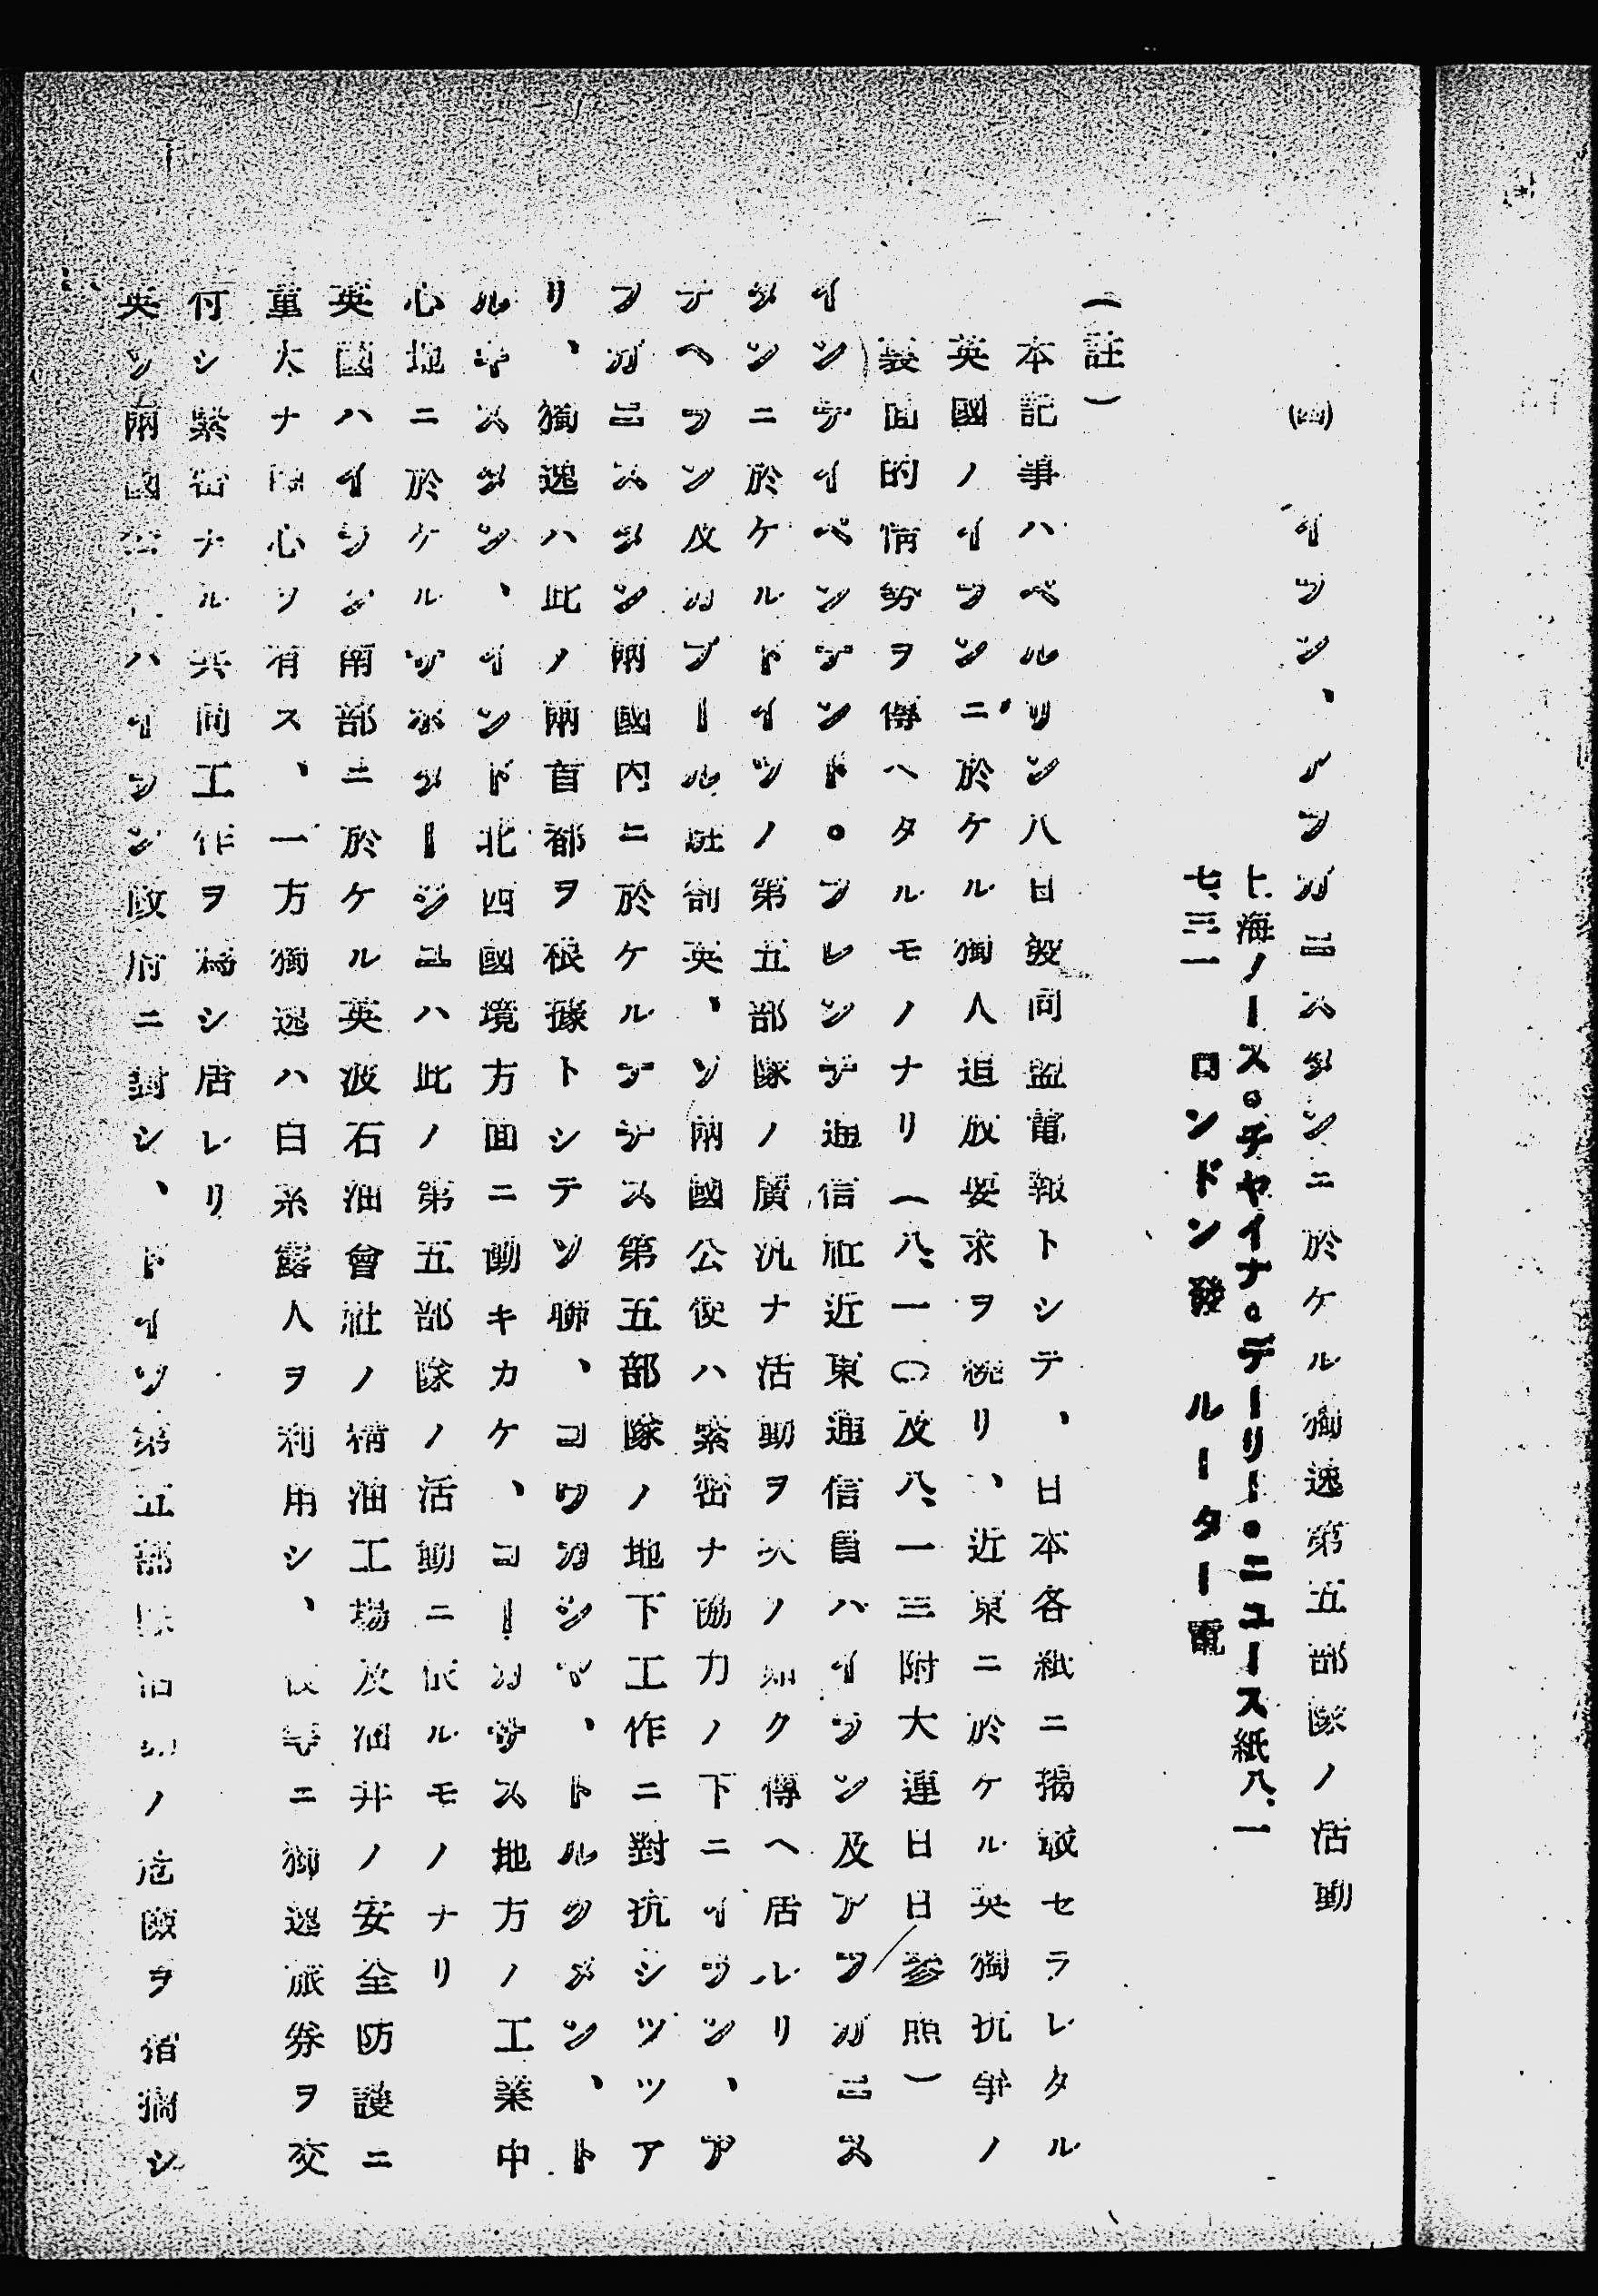 (四) イラン、アフガニスタンニ於ケル獨逸第五部隊ノ活動
上海ノース。チヤイナ。デーリー。ニユース紙八、一
七、三一 ロンドン發 ルーター電
(註)
本記事ハベルリン八日發同盟電報トシテ、日本各紙ニ揭載セラレタル
英國ノイランニ於ケル獨人追放要求ヲ繞リ、近東ニ於ケル英獨抗爭ノ
裏面的情勢ヲ傳ヘタルモノナリ(八、一〇及八、一三附大連日日參照)
インデイペンデント。フレンチ通信社近東通信員ハイラン及アフガニス
タンニ於ケルドイツノ第五部隊ノ廣汎ナ活動ヲ次ノ如ク傳ヘ居ルリ
テヘラン及カブール駐剳英、ソ兩國公使ハ緊密ナ協力ノ下ニイラン、ア
フガニスタン兩國内ニ於ケルナチス第五部隊ノ地下工作ニ對抗シツツア
リ、獨逸ハ此ノ兩首都ヲ根據トシテソ聯、コワカシヤ、トルクメン、ト
ルキスタン、インド北四國境方面ニ動キカケ、コーカサス地方ノ工業中
心地ニ於ケルサボタージユハ此ノ第五部隊ノ活動ニ依ルモノナリ
英國ハイラン南部ニ於ケル英波石油會社ノ精油工場及油井ノ安全防護ニ
重大ナ關心ヲ有ス、一方獨逸ハ白系露人ヲ利用シ、彼等ニ獨逸旅券ヲ交
付シ緊密ナル共同工作ヲ爲シ居レリ
英ソ兩國ハイラン政府ニ對シ、ドイツ第五部隊活動ノ危險ヲ指摘シ